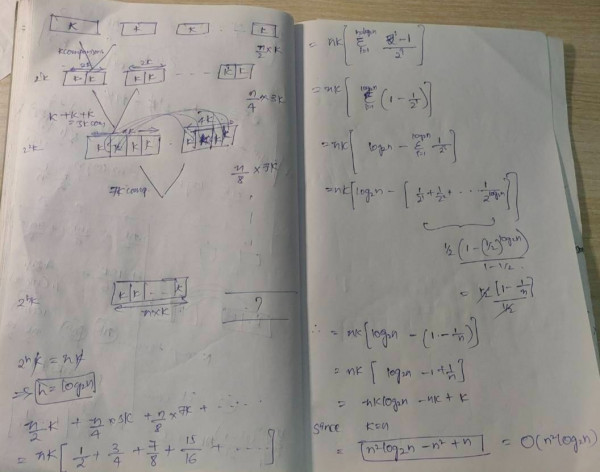 K K K K
K comparisons
n/2 × K
2K 2K
2¹K K K K K K K
K + K + K
= 3K com
n/4 × 3K
4K
2²K K K K K K K K K
n/8 × 7K
7K comp
2ʰK K K ... K
n×K
?
2ʰK = nK
⇒ h = log₂n
n/2 K + n/4 × 3K + n/8 × 7K + ....
= nK[1/2 + 3/4 + 7/8 + 15/16 + ....]
= nK[Σ (2ⁱ-1)/2ⁱ]
= nK[Σ (1 - 1/2ⁱ)]
= nK[log₂n - Σ 1/2ⁱ]
= nK[log₂n - [1/2¹ + 1/2² + ... 1/2^log₂n]]
1/2 (1 - (1/2)^log₂n)
1 - 1/2
= 1/2 [1 - 1/n]
1/2
∴ = nK[log₂n - (1 - 1/n)]
= nK[log₂n - 1 + 1/n]
= nK log₂n - nK + K
since K=n
= n² log₂n - n² + n = O(n² log₂n)